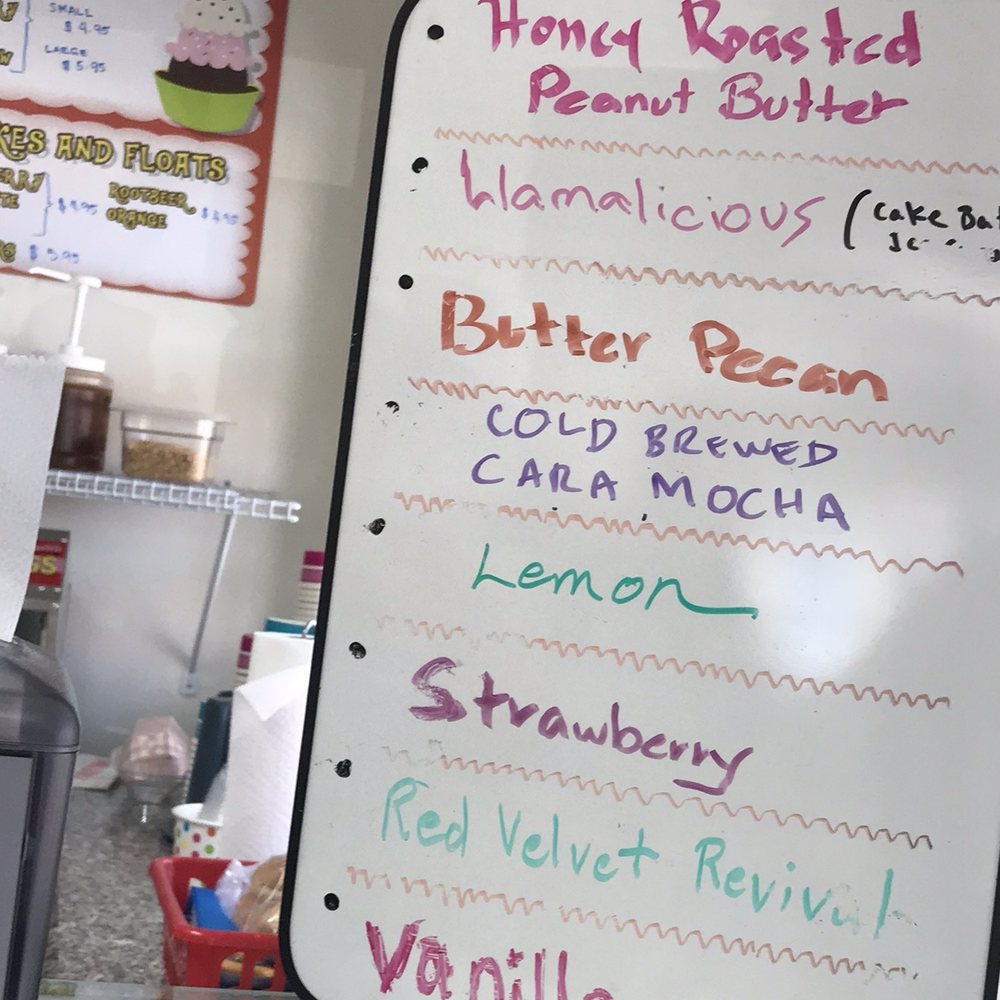 SMALL
$4.95
LARGE
$5.95
AND FLOATS
ROOTBEER
ORANGE
$5.95
Honey Roasted
Peanut Butter
Llamalicious (Cake
Butter Pecan
COLD BREWED
CARA MOCHA
Lemon
Strawberry
Red Velvet Revival
Vanilla